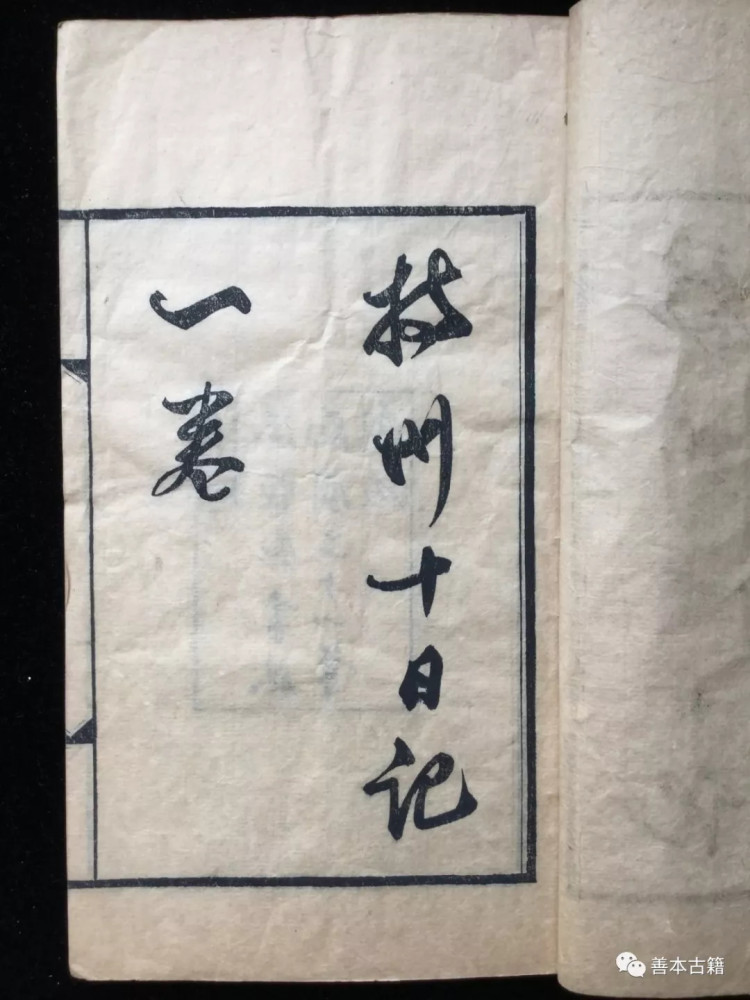 揚州十日記
一卷
善本古籍